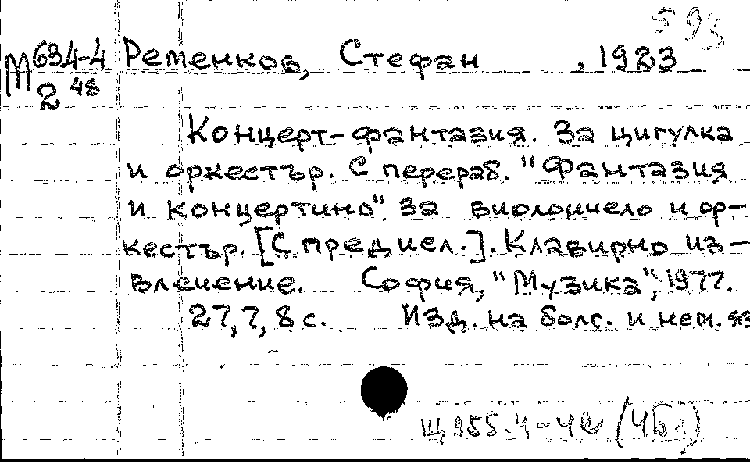 593
М 634-4 Ременков, Стефан , 1923
2 48
Концерт-фантазия. За цигулка
и оркестър. С перераб. "Фантазия
и концертино". За виолончело и ор-
кестър. [С предисл.]. Клавирно из-
влечение. София, "Музика", 1977.
27, 7, 8 с. Изд. на болг. и нем. яз
Щ 955.4-4